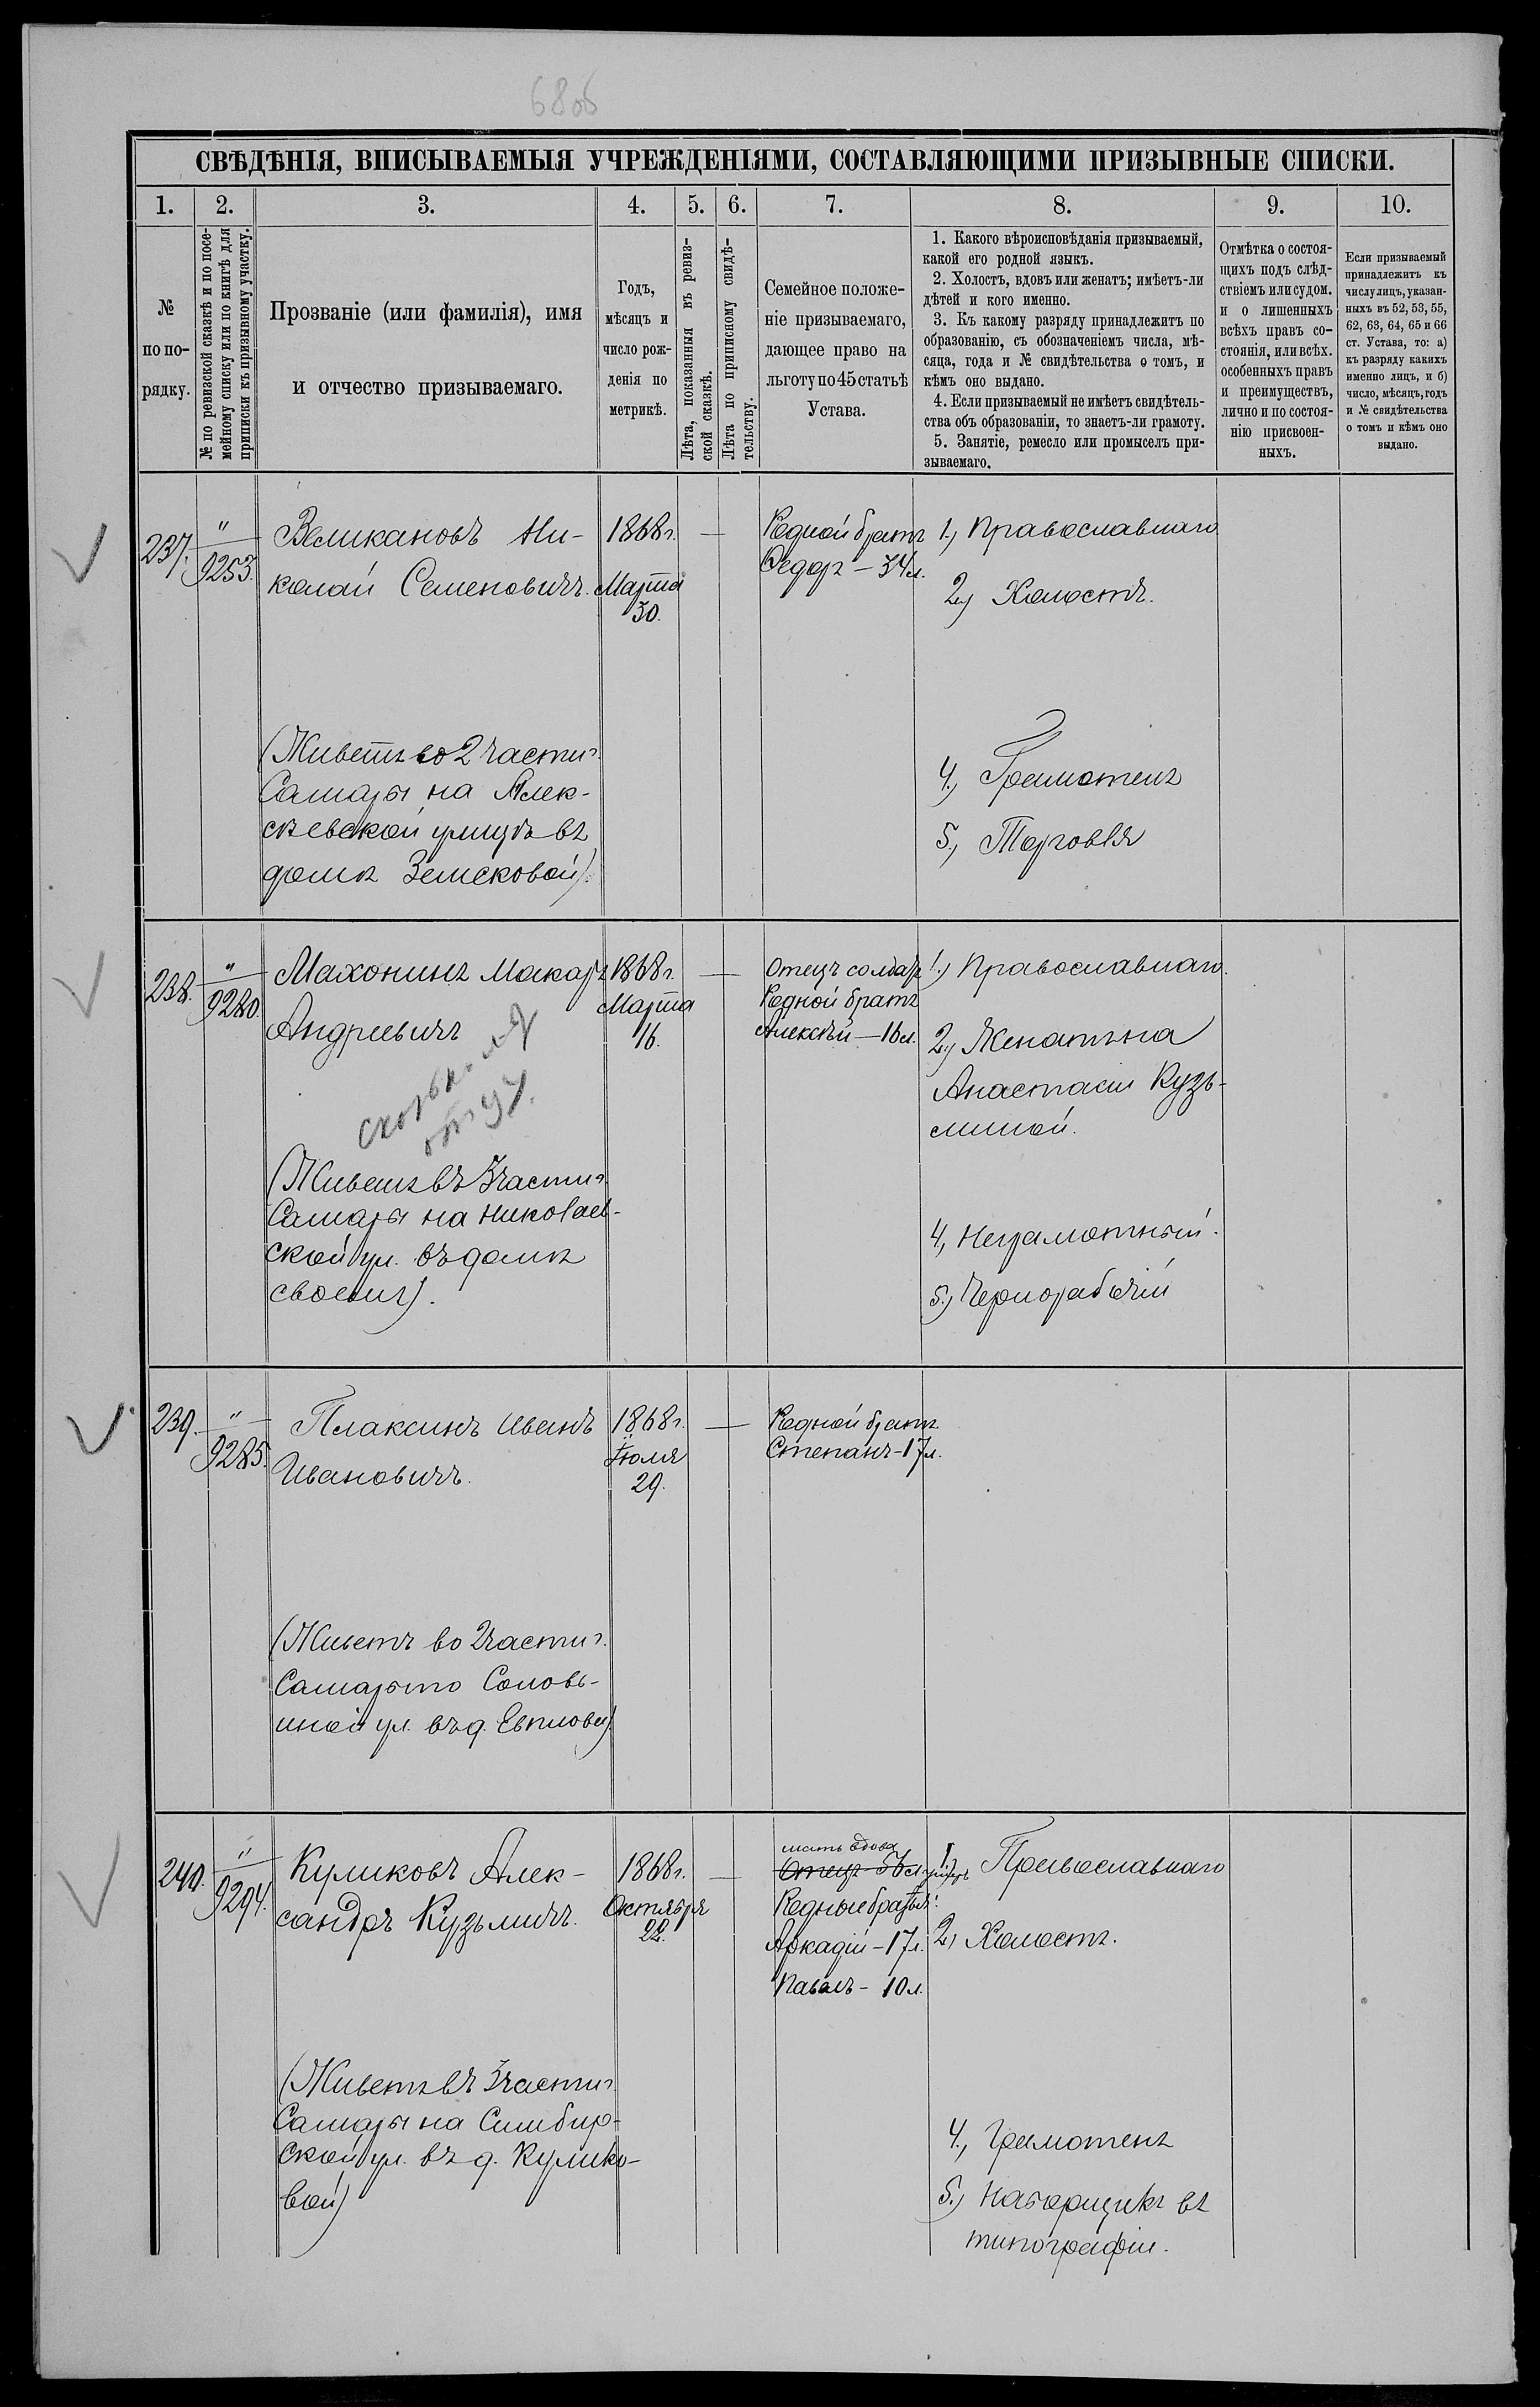 68об
СВѢДѢНІЯ, ВПИСЫВАЕМЫЯ УЧРЕЖДЕНІЯМИ, СОСТАВЛЯЮЩИМИ ПРИЗЫВНЫЕ СПИСКИ.
1. 2. 3. 4. 5. 6. 7. 8. 9. 10.
№
по по-
рядку.
№ по ревизской сказкѣ и по посе-
мейному списку или по книгѣ для
приписки къ призывному участку.
Прозваніе (или фамилія), имя
и отчество призываемаго.
Годъ,
мѣсяцъ и
число рож-
денія по
метрикѣ.
Лѣта, показанныя въ ревиз-
ской сказкѣ.
Лѣта по приписному свидѣ-
тельству.
Семейное положе-
ніе призываемаго,
дающее право на
льготу по 45 статьѣ
Устава.
1. Какого вѣроисповѣданія призываемый,
какой его родной языкъ.
2. Холостъ, вдовъ или женатъ; имѣетъ-ли
дѣтей и кого именно.
3. Къ какому разряду принадлежитъ по
образованію, съ обозначеніемъ числа, мѣ-
сяца, года и № свидѣтельства о томъ, и
кѣмъ оно выдано.
4. Если призываемый не имѣетъ свидѣтель-
ства объ образованіи, то знаетъ-ли грамоту.
5. Занятіе, ремесло или промыселъ при-
зываемаго.
Отмѣтка о состоя-
щихъ подъ слѣд-
ствіемъ или судом.
и о лишенныхъ
всѣхъ правъ со-
стоянія, или всѣх.
особенныхъ правъ
и преимуществъ,
лично и по состоя-
нію присвоен-
ныхъ.
Если призываемый
принадлежитъ къ
числу лицъ, указан-
ныхъ въ 52, 53, 55,
62, 63, 64, 65 и 66
ст. Устава, то: а)
къ разряду какихъ
именно лицъ, и б)
число, мѣсяцъ, годъ
и № свидѣтельства
о томъ и кѣмъ оно
выдано.
237. "
9253.
Великановъ Ни-
колай Семеновичъ.
1868 г.
Марта
30.
—
Родной братъ
Федоръ — 34 л.
1.) Православнаго
2.) Холостъ.
(Живетъ во 2 части г.
Самары на Алек-
сѣевской улицѣ въ
домѣ Земсковой).
4.) Грамотенъ
5.) Торговля
238. "
9280.
Махонинъ Макаръ
Андреевичъ
1868 г.
Марта
16.
—
Отецъ солдатъ
Родной братъ
Алексѣй — 16 л.
1.) Православнаго.
2.) Женатъ на
Анастасіи Кузь-
миной.
(Живетъ въ 3 части г.
Самары на Николаев-
ской ул. въ домѣ
своемъ).
4, Неграмотный.
5.) Чернорабочій
239. "
9285.
Плаксинъ Иванъ
Ивановичъ.
1868 г.
Іюля
29.
—
Родной братъ
Степанъ - 17 л.
(Живетъ во 2 части г.
Самары по Соловь-
иной ул. въ д. Евплова)
240. "
9294.
Куликовъ Алек-
сандръ Кузьмичъ.
1868 г.
Октября
22.
—
мать вдова
Отецъ - 56 л.
Родные братья:
Аркадій - 17 л.
Павелъ - 10 л.
1.) Православнаго
2.) Холостъ.
(Живетъ въ 3 части г.
Самары на Симбир-
ской ул. въ д. Кулико-
вой)
4., Грамотенъ
5.) Наборщикъ въ
типографіи.